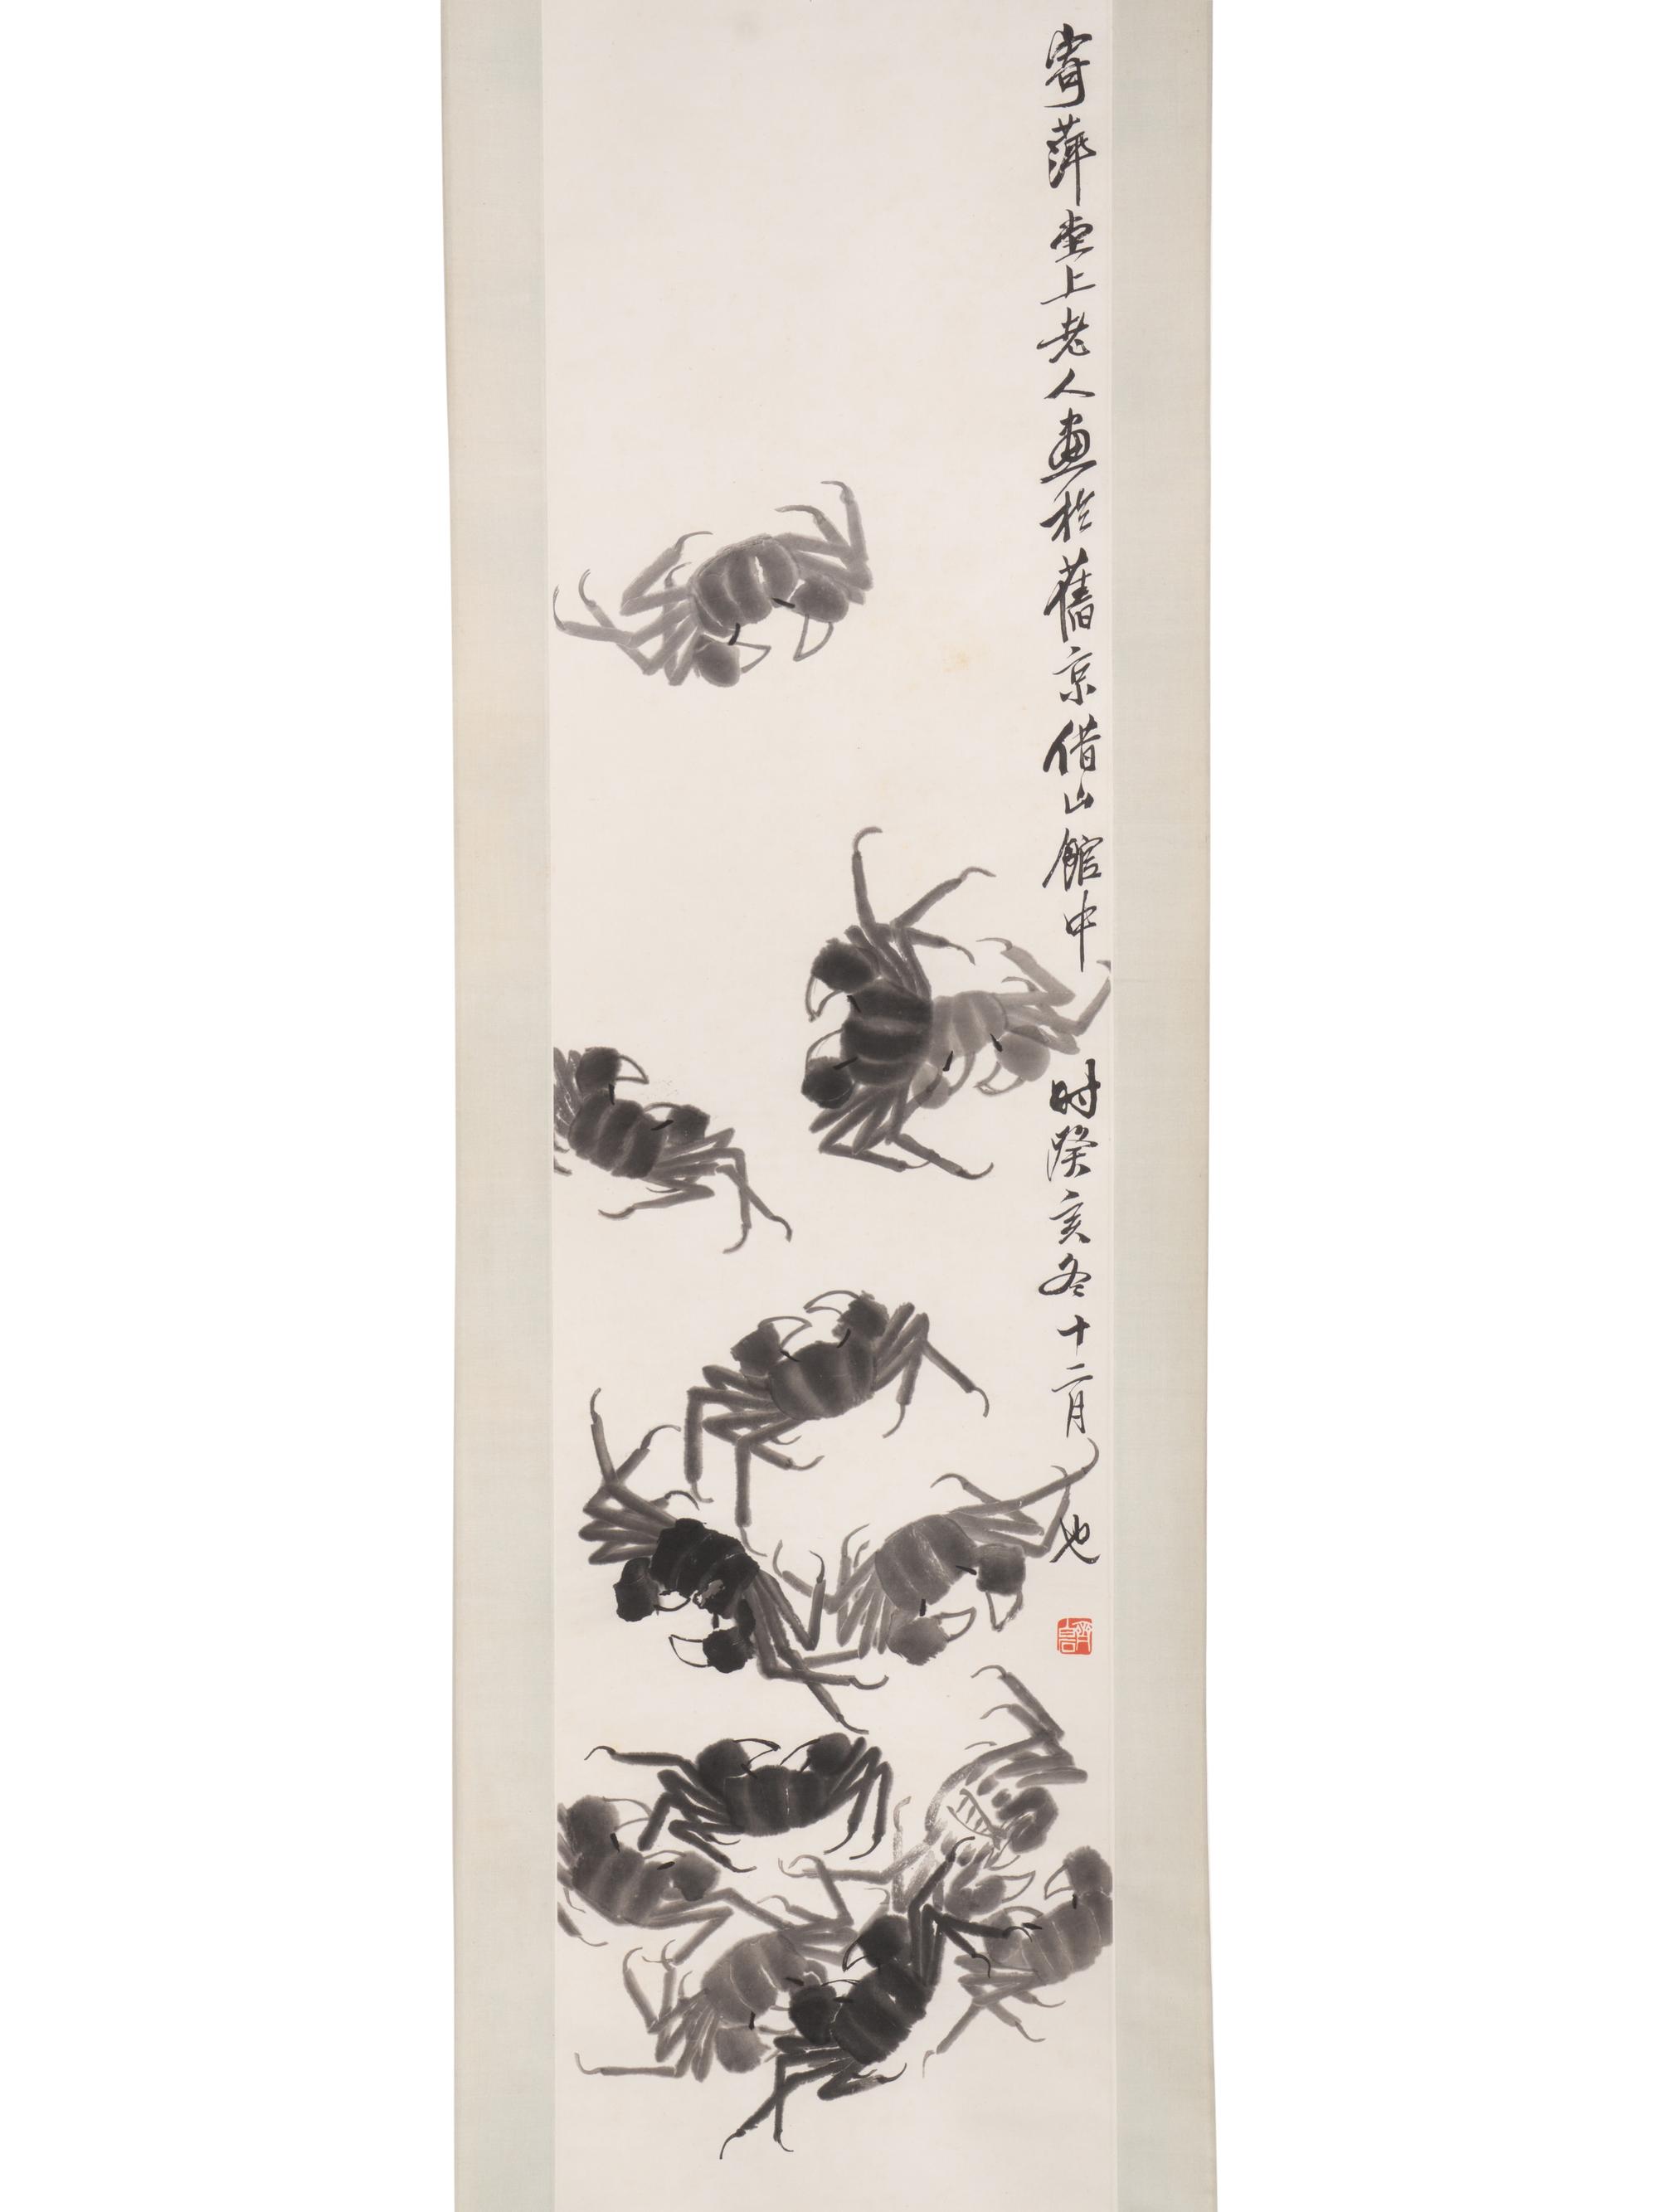 寄萍堂上老人畫於舊京借山館中時癸亥冬十二月也
齊白石